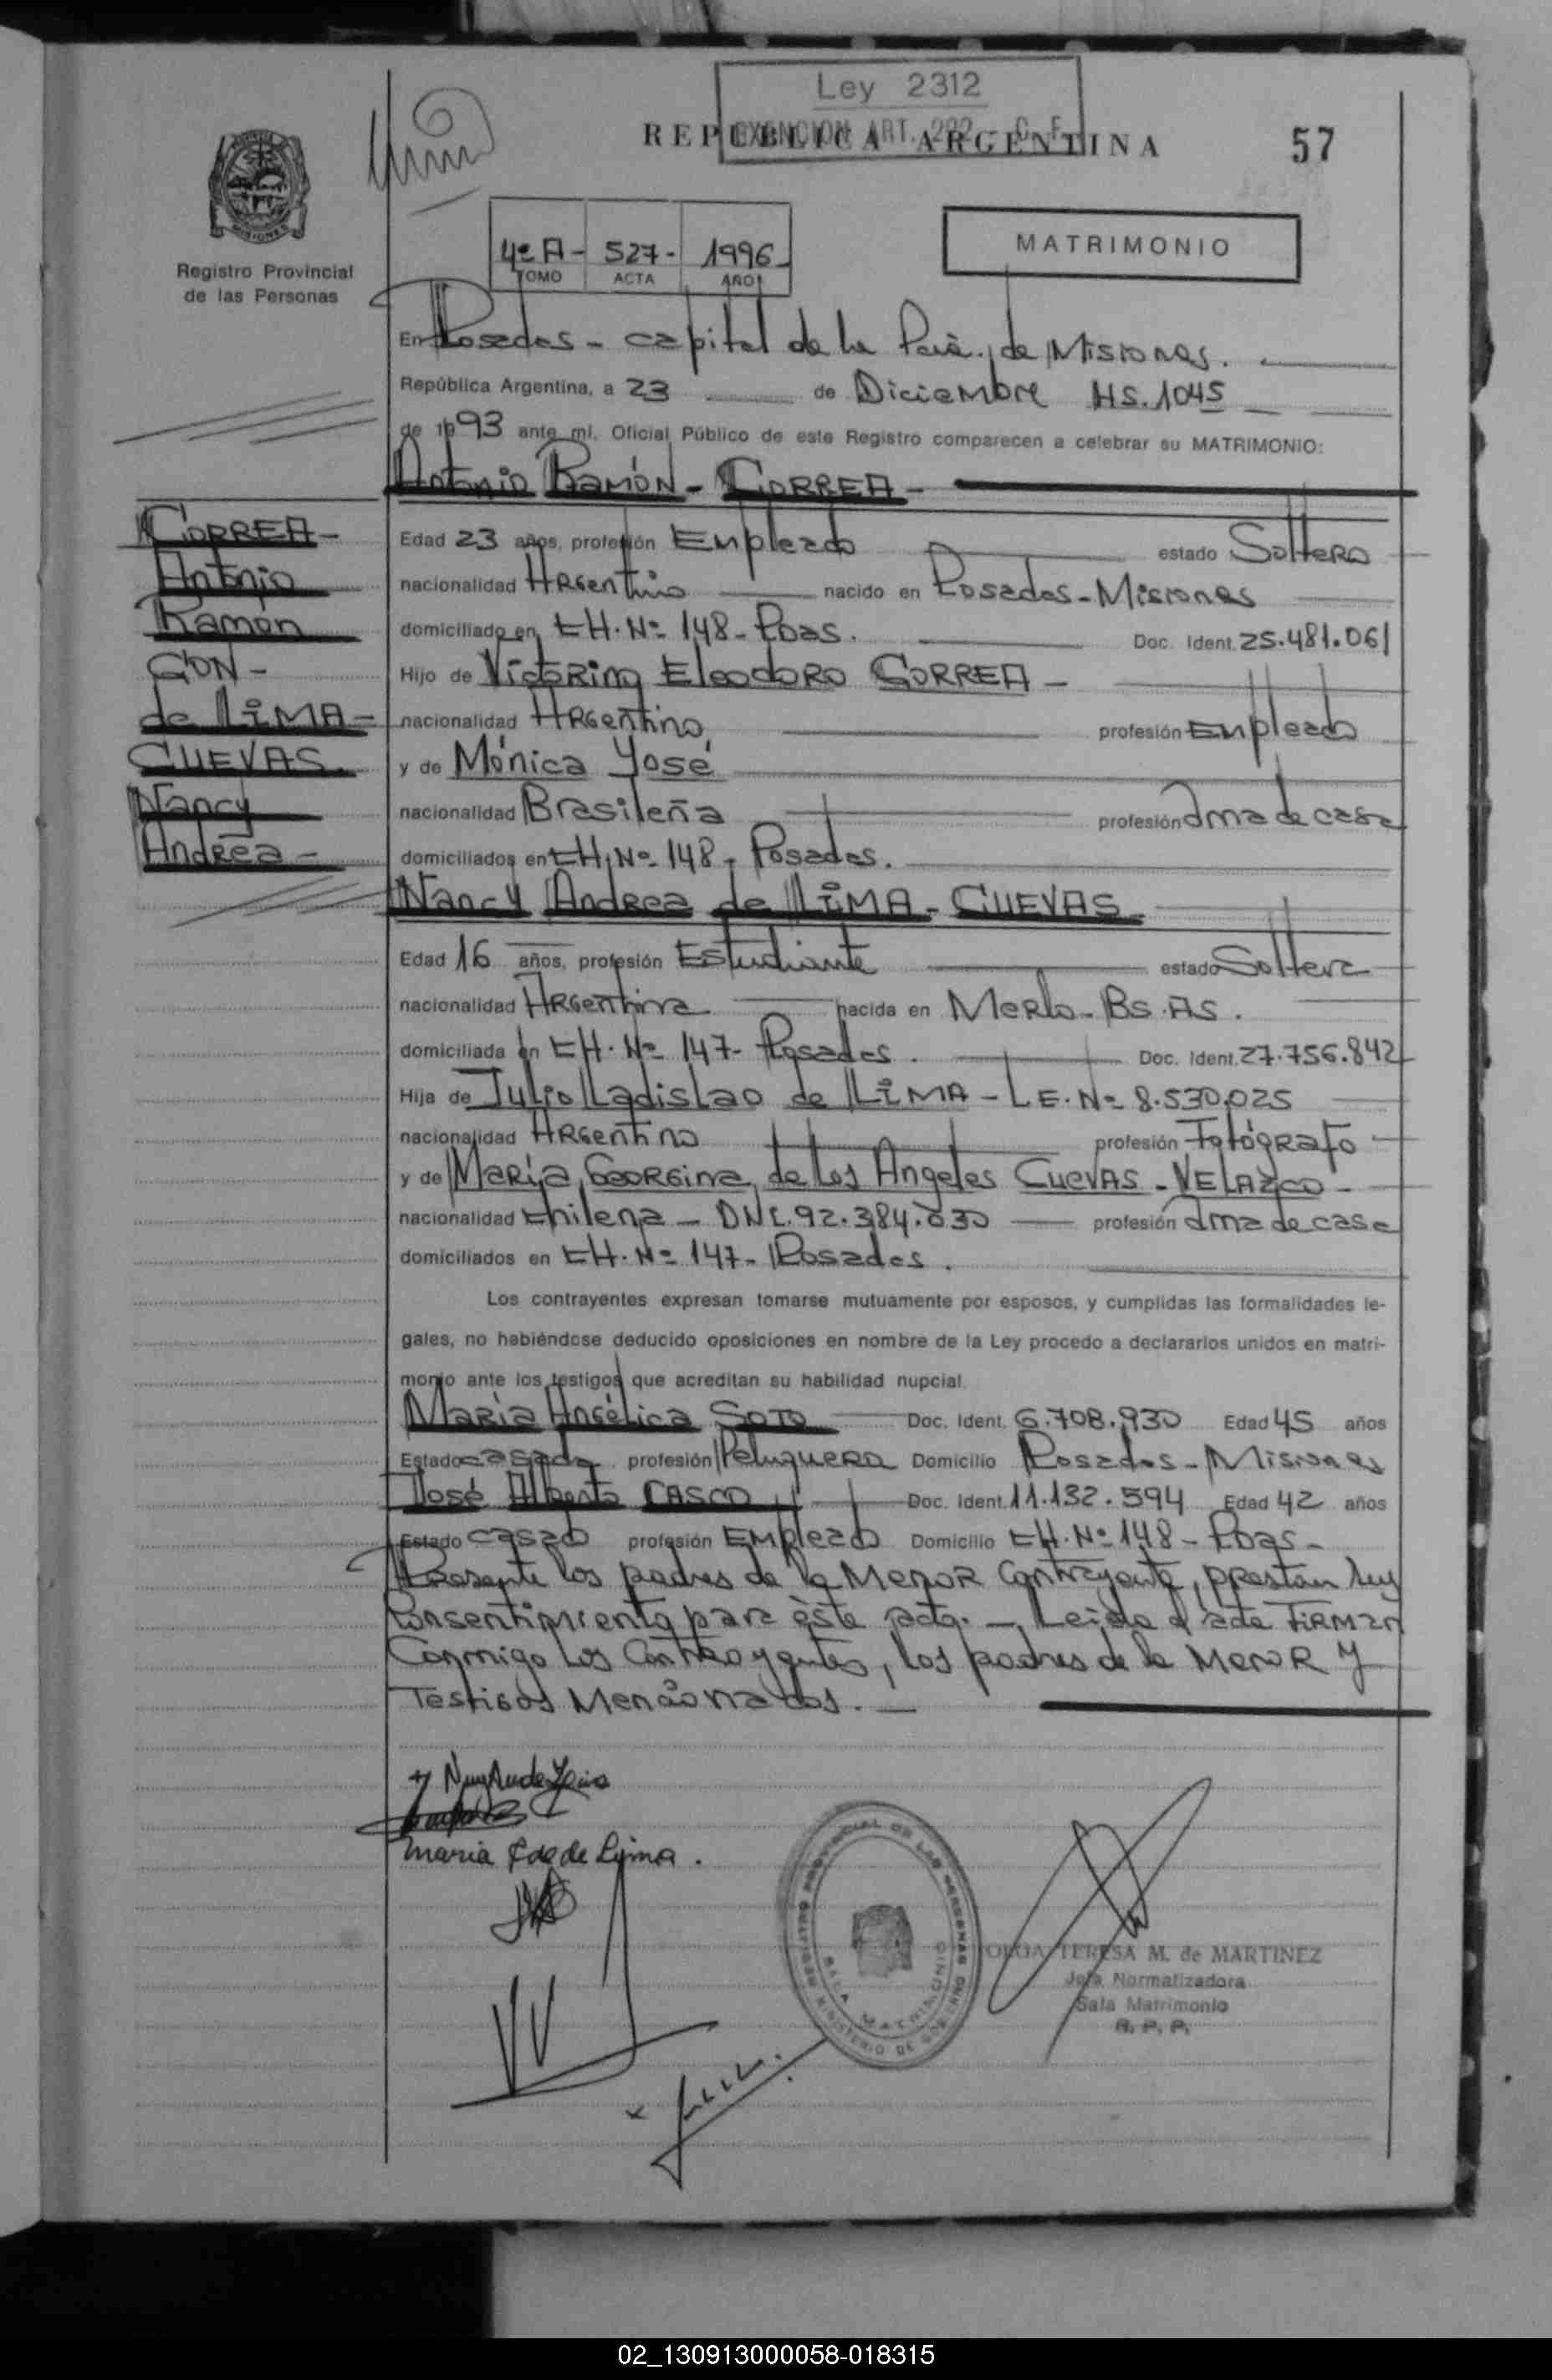 Ley 2312
EXENCION ART. 292 - C. F.
REPUBLICA ARGENTINA
57
MISIONES
Registro Provincial
de las Personas
4º A - 527 - 1996
TOMO ACTA AÑO
MATRIMONIO
En Posadas - capital de la Pcia. de Misiones.
República Argentina, a 23 de Diciembre HS. 1045
de 1993 ante mí, Oficial Público de este Registro comparecen a celebrar su MATRIMONIO:
Antonio Ramón - CORREA -
CORREA -
Antonio
Ramon
CON -
de LIMA -
CUEVAS.
Nancy
Andrea -
Edad 23 años, profesión Empleado estado Soltero
nacionalidad Argentino nacido en Posadas - Misiones
domiciliado en CH. Nº 148 - Pdas. Doc. Ident. 25.481.061
Hijo de Victorino Eleodoro CORREA -
nacionalidad Argentino, profesión Empleado
y de Mónica José
nacionalidad Brasileña profesión Ama de casa
domiciliados en CH. Nº 148 - Posadas.
Nancy Andrea de LIMA - CUEVAS.
Edad 16 años, profesión Estudiante estado Soltera
nacionalidad Argentina nacida en Merlo - Bs. As.
domiciliada en CH. Nº 147 - Posadas. Doc. Ident. 27.756.842
Hija de Julio Ladislao de LIMA - L.E. Nº 8.530.025
nacionalidad Argentino profesión Fotógrafo
y de María Georgina de los Angeles CUEVAS - VELAZCO -
nacionalidad Chilena - DNI. 92.384.030 profesión Ama de casa
domiciliados en CH. Nº 147 - Posadas.
Los contrayentes expresan tomarse mutuamente por esposos, y cumplidas las formalidades le-
gales, no habiéndose deducido oposiciones en nombre de la Ley procedo a declararlos unidos en matri-
monio ante los testigos que acreditan su habilidad nupcial.
María Angélica SOTO Doc. Ident. 6.708.930 Edad 45 años
Estado casada profesión Peluquera Domicilio Posadas - Misiones
José Alberto CASCO Doc. Ident. 11.132.594 Edad 42 años
Estado casado profesión Empleado Domicilio CH. Nº 148 - Pdas -
Presente los padres de la Menor Contrayente, prestan su
Consentimiento para éste acto. - Leida el acta Firman
Conmigo los Contrayentes, los padres de la Menor y
Testigos Mencionados. -
maria de Lima.
REGISTRO PROVINCIAL DE LAS PERSONAS
MINISTERIO DE GOBIERNO
SALA MATRIMONIO
OLGA TERESA M. de MARTINEZ
Jefa Normatizadora
Sala Matrimonio
R. P. P.
02_130913000058-018315